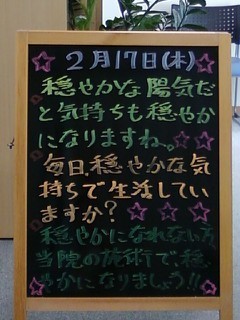 2月17日(木)
穏やかな陽気だ
と気持ちも穏やか
になりますね。
毎日、穏やかな気
持ちで生活してい
ますか?
穏やかになれない方
当院の施術で穏
やかになりましょう!!